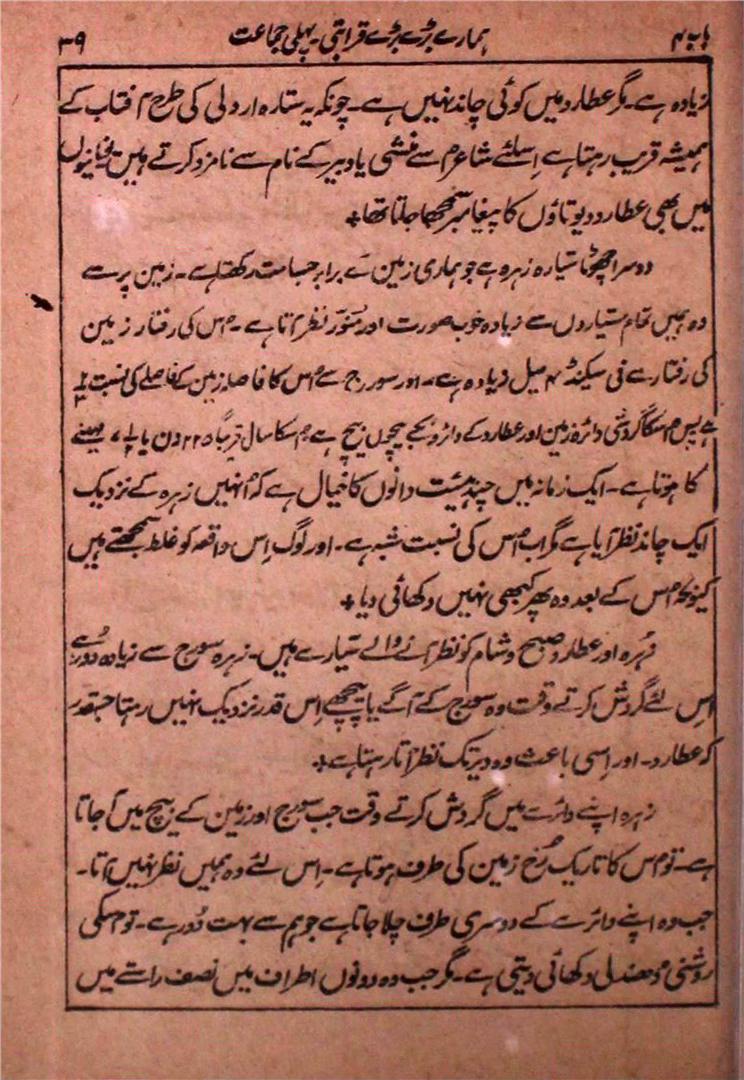 باب ۴ ہمارے بڑے بڑے قرابتی۔ پہلی جماعت ۳۹
زیادہ ہے۔ مگر عطارد میں کوئی چاند نہیں ہے۔ چونکہ یہ ستارہ اردلی کی طرح آفتاب کے
ہمیشہ قریب رہتا ہے اِسلئے شاعر اسے منشی یا دبیر کے نام سے نامزد کرتے ہیں یونانیوں
میں بھی عطارد دیوتاؤں کا پیغامبر سمجھا جاتا تھا +
دوسرا چھوٹا سیّارہ زہرہ ہے جو ہماری زمین کے برابر جسامت رکھتا ہے۔ زمین پر سے
وہ ہمیں تمام سیّاروں سے زیادہ خوب صورت اور منوّر نظر آتا ہے۔ اس کی رفتار زمین
کی رفتار سے فی سیکنڈ ۴ میل زیادہ ہے۔ اور سورج سے اس کا فاصلہ زمین کے فاصلے کی نسبت
ہے پس اسکا گردشی دائرہ زمین اور عطارد کے دائروں کے بیچوں بیچ ہے اسکا سال قریباً ۲۲۵ دن یا ۷ مہینے
کا ہوتا ہے۔ ایک زمانہ میں چند ہیئت دانوں کا خیال ہے کہ اُنہیں زہرہ کے نزدیک
ایک چاند نظر آیا ہے مگر اب اُس کی نسبت شبہ ہے۔ اور لوگ اِس واقعہ کو غلط سمجھتے ہیں
کیونکہ اس کے بعد وہ پھر کبھی نہیں دکھائی دیا +
زہرہ اور عطارد صبح و شام کو نظر آنے والے سیّارے ہیں۔ زہرہ سورج سے زیادہ دُور ہے
اِس لئے گردش کرتے وقت وہ سورج کے آگے یا پیچھے اِس قدر نزدیک نہیں رہتا جسقدر
کہ عطارد۔ اور اِسی باعث وہ دیر تک نظر آتا رہتا ہے +
زہرہ اپنے دائرے میں گردش کرتے وقت جب سورج اور زمین کے بیچ میں آ جاتا
ہے۔ تو اس کا تاریک رُخ زمین کی طرف ہوتا ہے۔ اِس لئے وہ ہمیں نظر نہیں آتا۔
جب وہ اپنے دائرے کے دوسری طرف چلا جاتا ہے جو ہم سے بہت دُور ہے۔ تو اسکی
روشنی دھندلی دکھائی دیتی ہے۔ مگر جب وہ دونوں اطراف میں نصف راستے میں